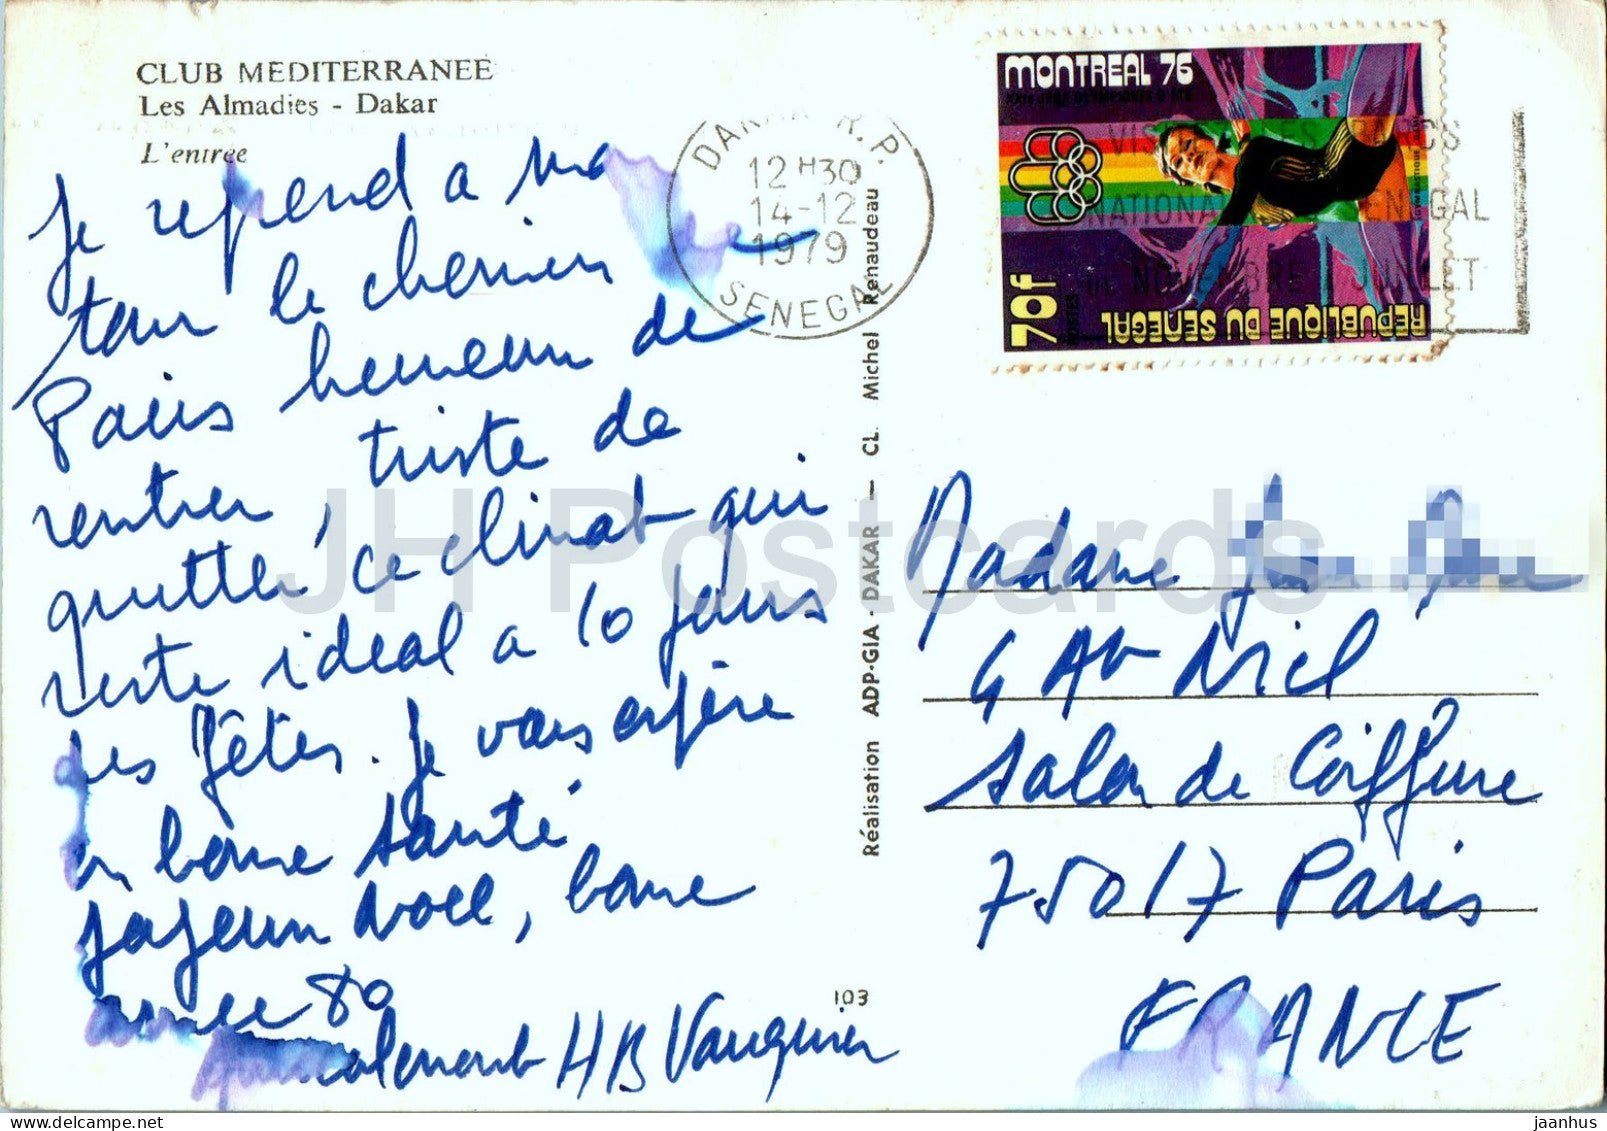 CLUB MEDITERRANEE
Les Almadies - Dakar
L'entrée
Je reprend a mo
tour le chemin de
Paris heureux de
rentrer, triste de
quitter ce climat qui
reste idéal a 10 jours
des fêtes. Je vous espère
en bonne santé
joyeux Noël, bonne
année 80
HB Vauquier
103
Réalisation ADP-GIA - DAKAR — CL. Michel Renaudeau
DAKAR R.P.
12 H30
14-12
1979
SENEGAL
MONTREAL 76
XXIe JEUX OLYMPIQUES D'ETE
GYMNASTIQUE
70f
POSTES
REPUBLIQUE DU SENEGAL
VISITEZ LES PARCS
NATIONAUX DU SENEGAL
de NOVEMBRE à JUILLET
Madame
4 Av Niel
Salon de Coiffure
75017 Paris
FRANCE
JH Postcards
jaanhus